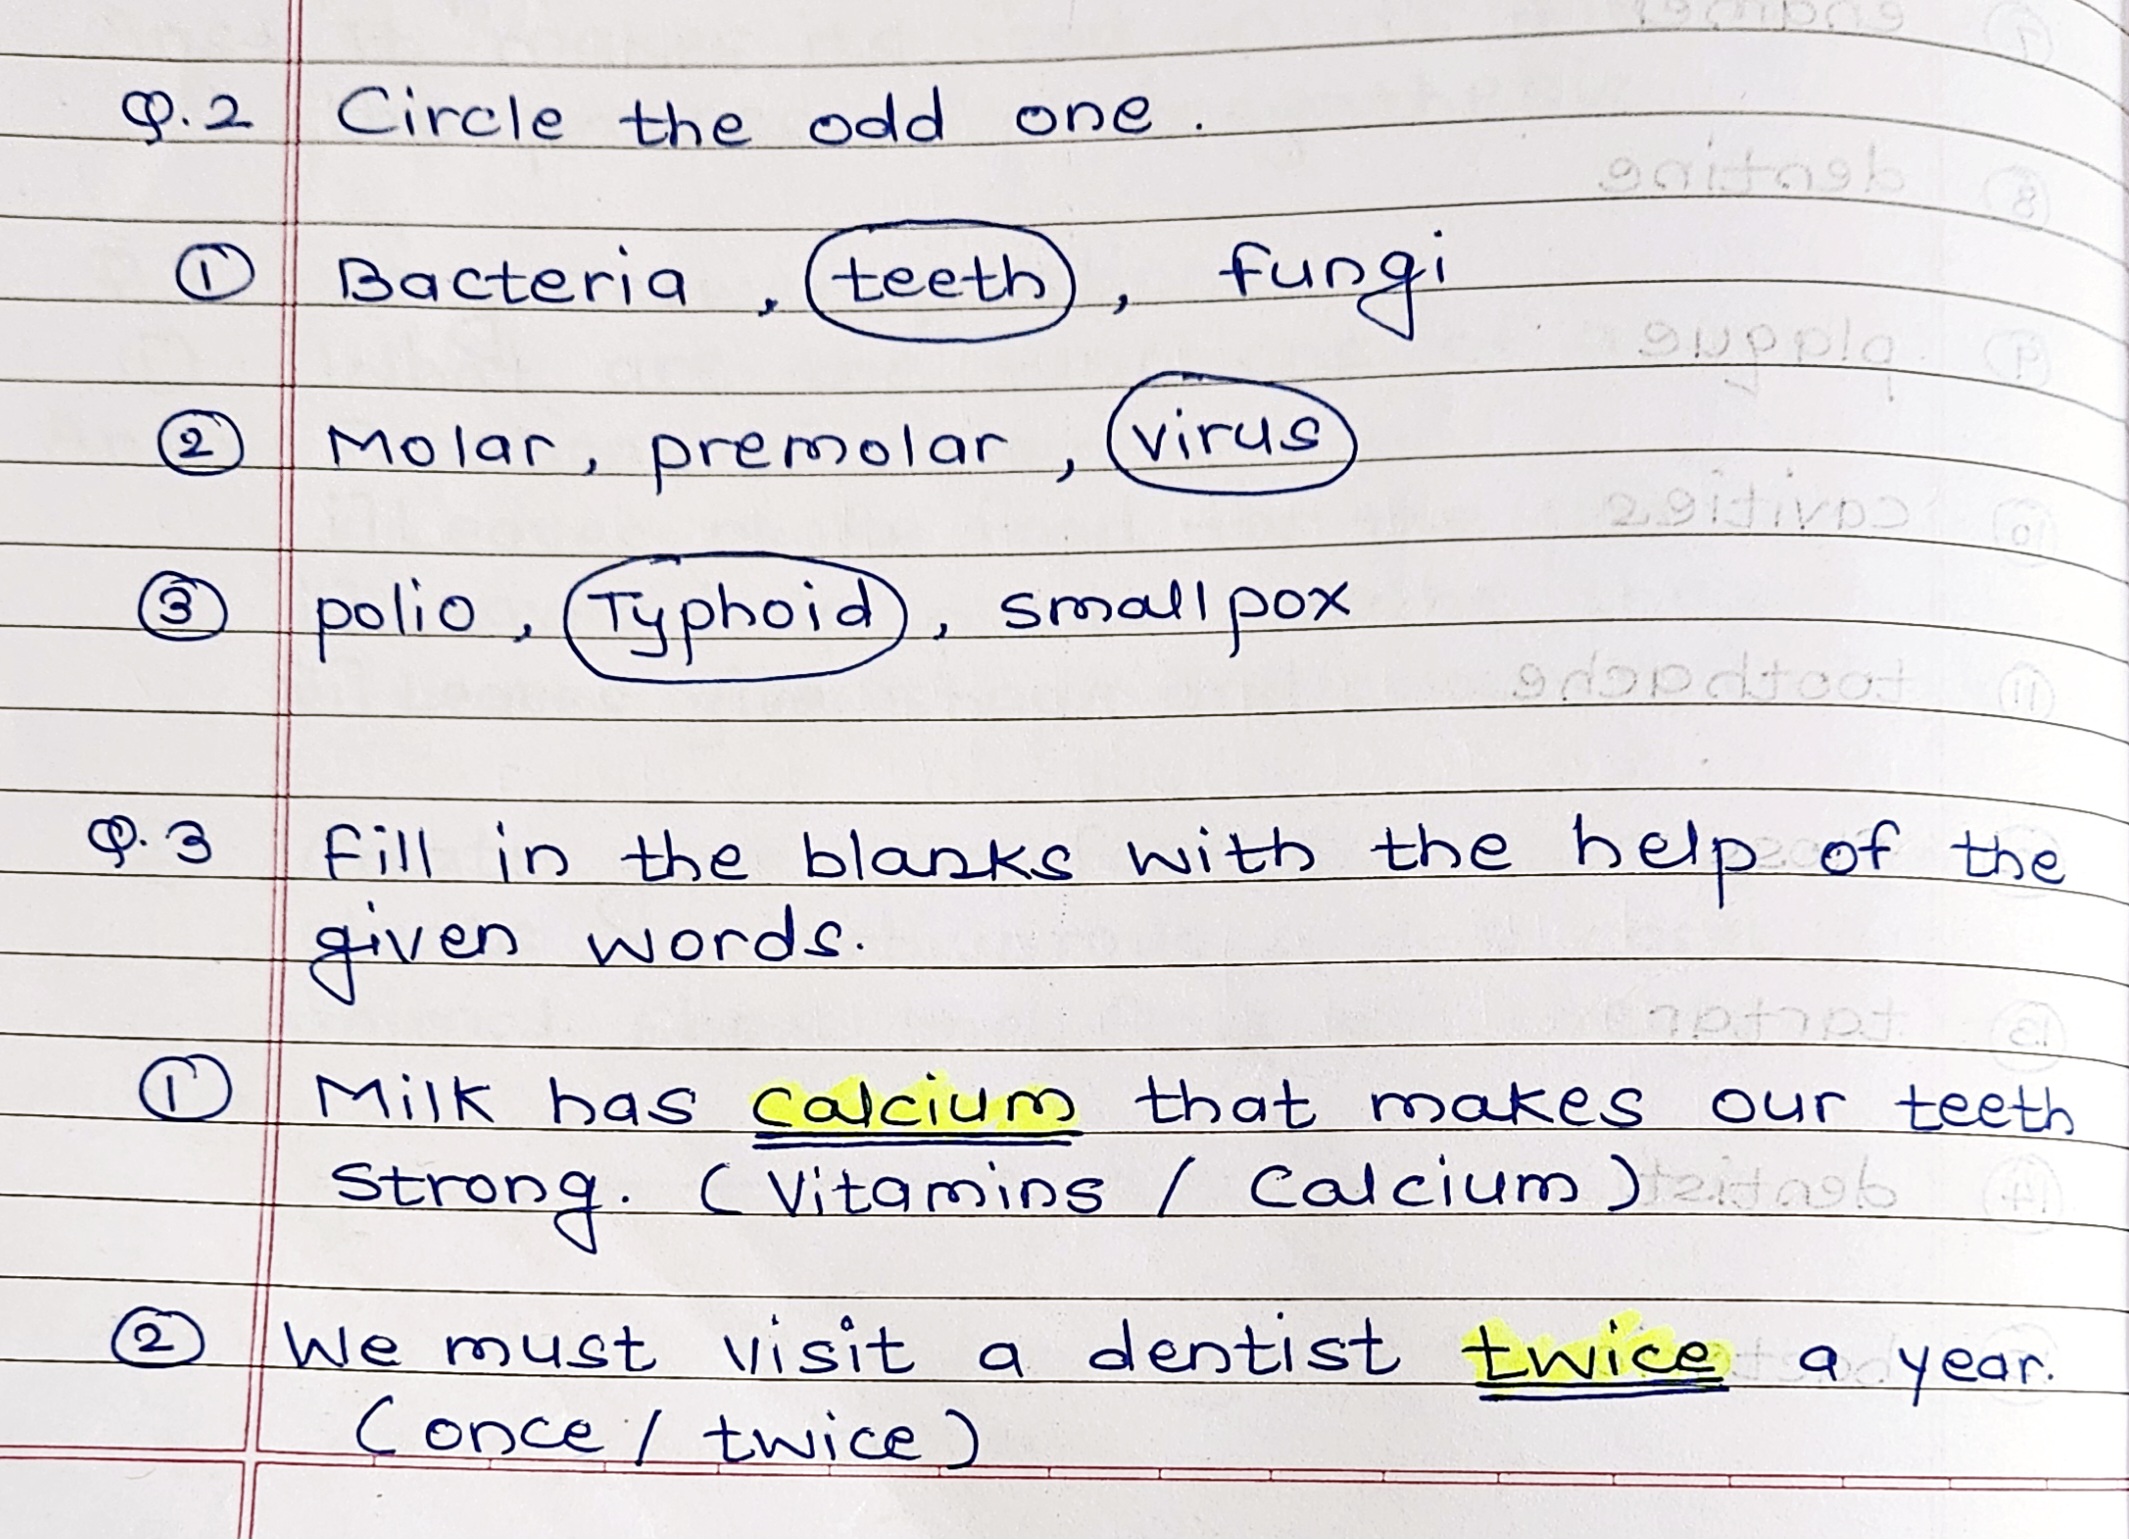 Q.2 Circle the odd one.
① Bacteria, teeth, fungi
② Molar, premolar, virus
③ polio, Typhoid, smallpox
Q.3 Fill in the blanks with the help of the
given words.
① Milk has calcium that makes our teeth
strong. (Vitamins / Calcium)
② We must visit a dentist twice a year.
(once / twice)